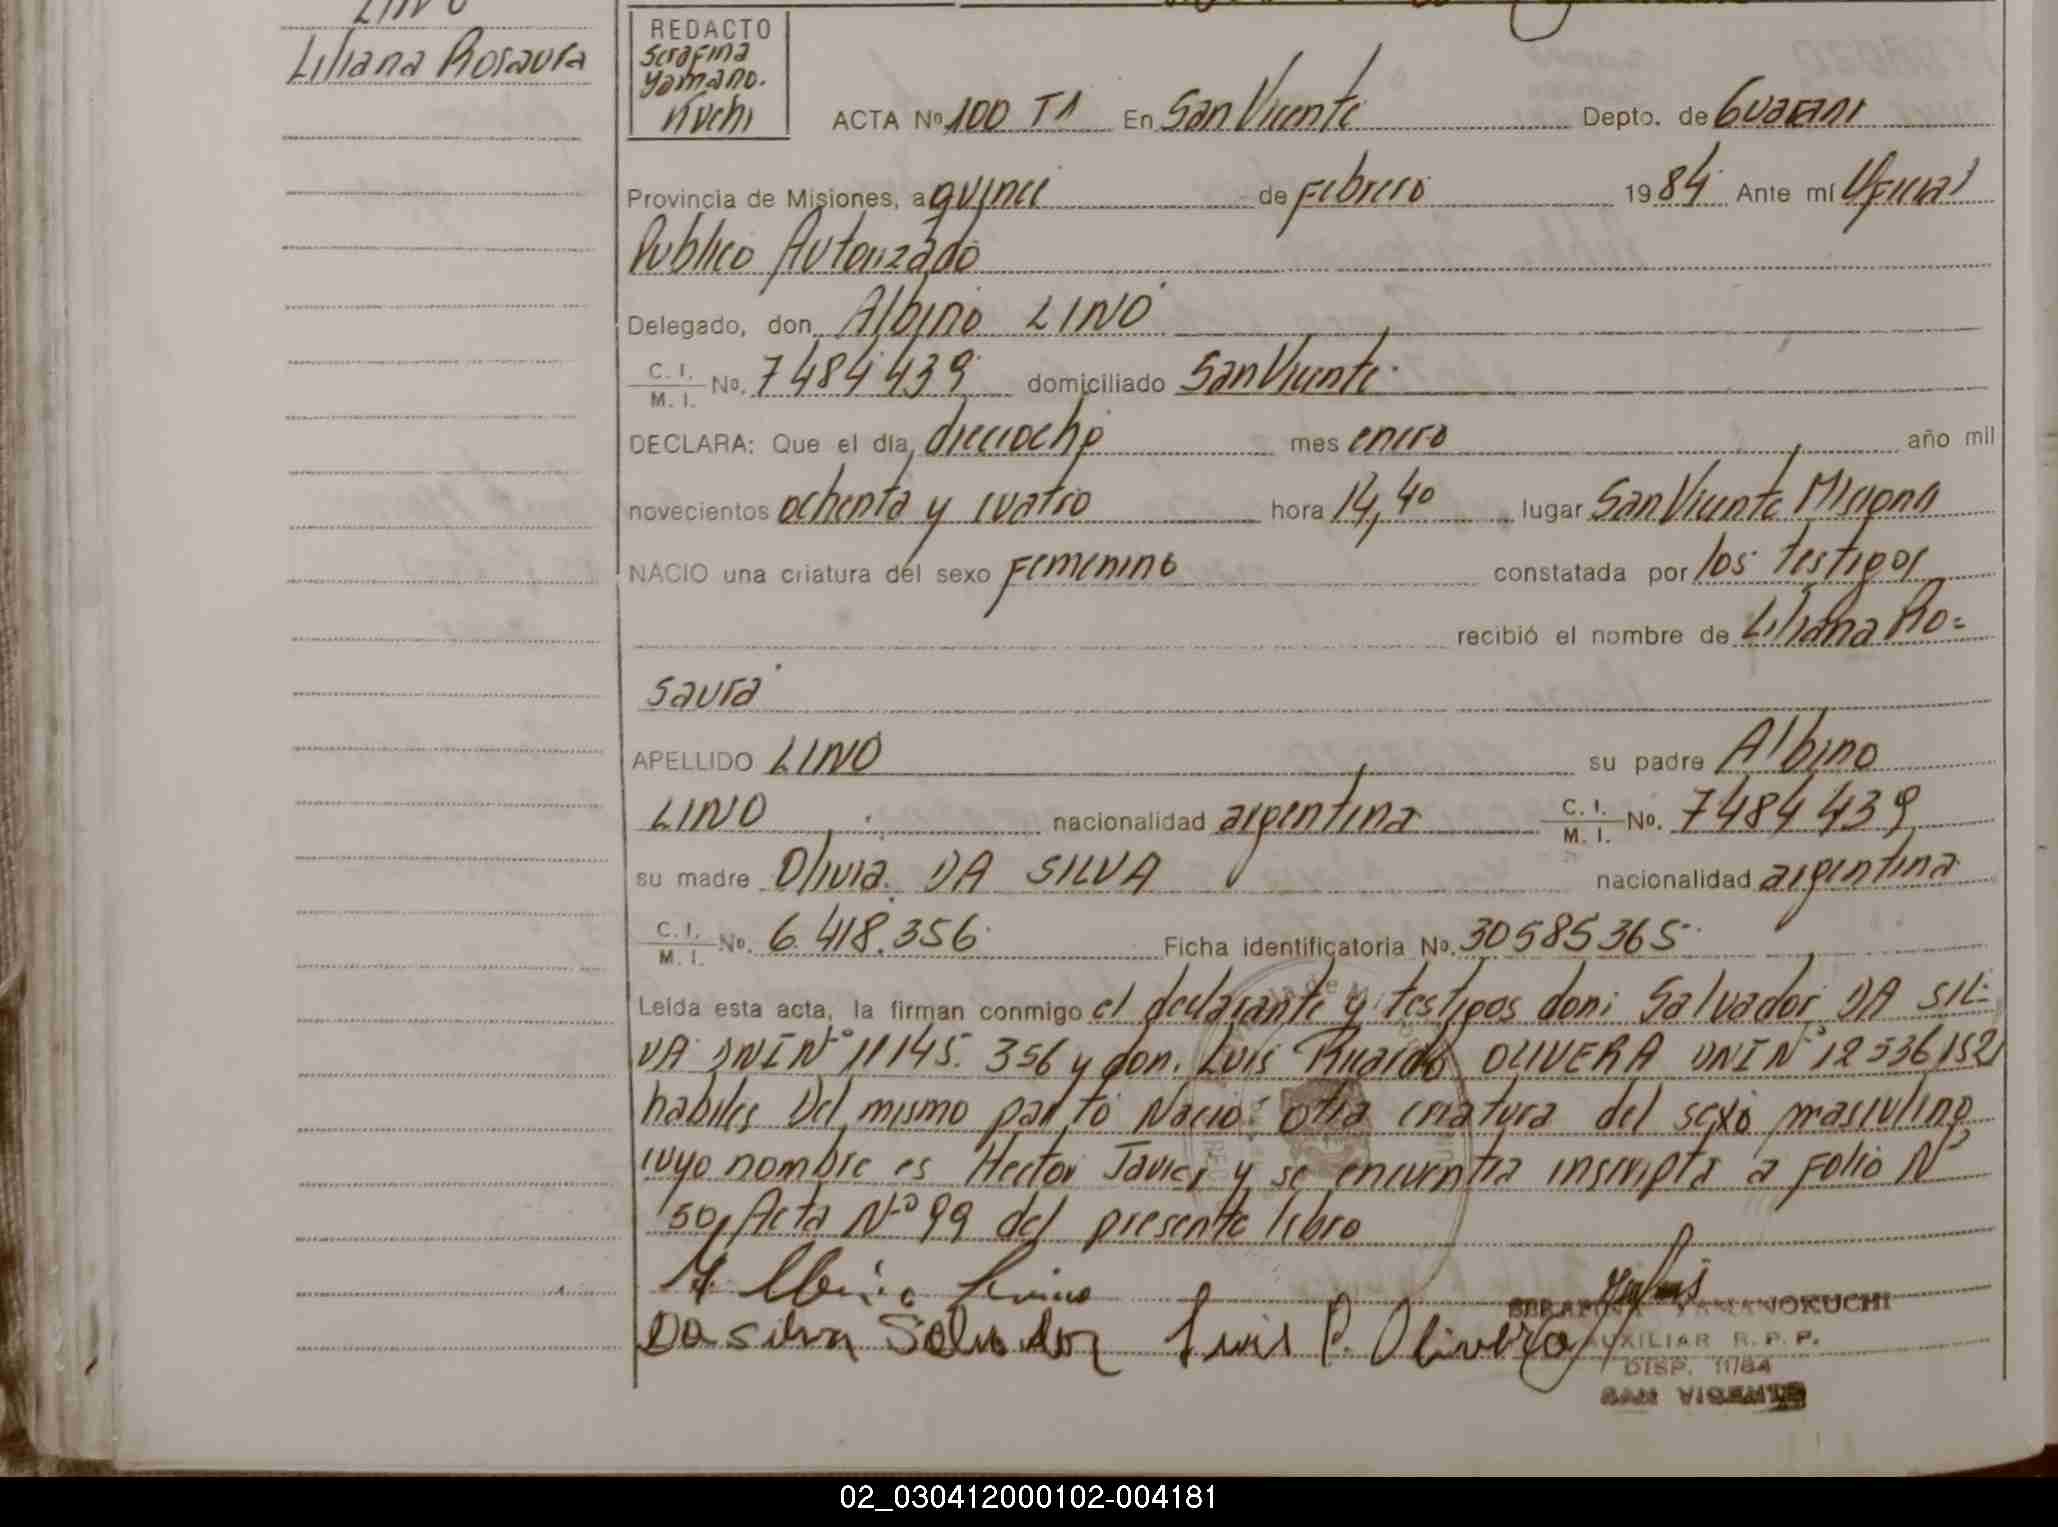 LINO
Liliana Rosaura
REDACTO
Serafina
Yamano.
Kuchi
ACTA Nº 100 T1 En San Vicente Depto. de Guarani
Provincia de Misiones, a quince de Febrero 1984. Ante mí Oficial
Publico Autorizado
Delegado, don Albino LINO
C. I. / M. I. No. 7484439 domiciliado San Vicente.
DECLARA: Que el día, dieciocho mes enero año mil
novecientos ochenta y cuatro hora 14,40 lugar San Vicente Misiones
NACIO una criatura del sexo Femenino constatada por los testigos
recibió el nombre de Liliana Ro=
saura
APELLIDO LINO su padre Albino
LINO nacionalidad argentina C. I. / M. I. No. 7484439
su madre Olivia. DA SILVA nacionalidad argentina
C. I. / M. I. No. 6.418.356 Ficha identificatoria No. 30585365
Leída esta acta, la firman conmigo el declarante y testigos don: Salvador DA SIL-
VA DNI Nº 11145.356 y don. Luis Ricardo OLIVERA DNI Nº 12336152
habiles Del mismo parto Nacio otra criatura del sexo masculino
cuyo nombre es Hector Javier y se encuentra inscripta a Folio Nº
50, Acta Nº 99 del presente libro
Albino Lino
Da silva Salvador Luis R. Olivera
SERAFINA YAMANOKUCHI
AUXILIAR R. P. P.
DISP. 11/84
SAN VICENTE
02_030412000102-004181